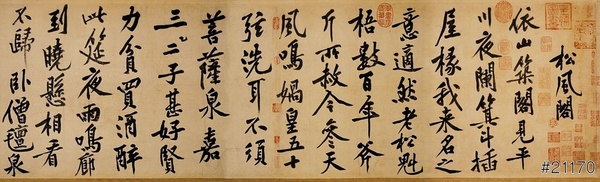 松風閣
依山築閣見平
川夜闌箕斗插
屋椽我來名之
意適然老松魁
梧數百年斧
斤所赦今參天
風鳴媧皇五十
弦洗耳不須
菩薩泉嘉
三二子甚好賢
力貧買酒醉
此筵夜雨鳴廊
到曉懸相看
不歸臥僧氈泉
#21170